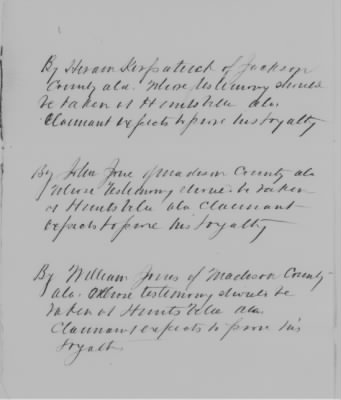 By Hiram Kirpatrick of Jackson
County ala. Whose testimony should
be taken at Huntsville ala.
Claimant expects to prove his loyalty
By John Jone of Madison County ala
Whose testimony be taken
at Huntsville ala Claimant
expects to prove his loyalty
By William Jones of Madison County
ala. Whose testimony should be
taken at Huntsville ala.
Claimant expects to prove his
loyalty